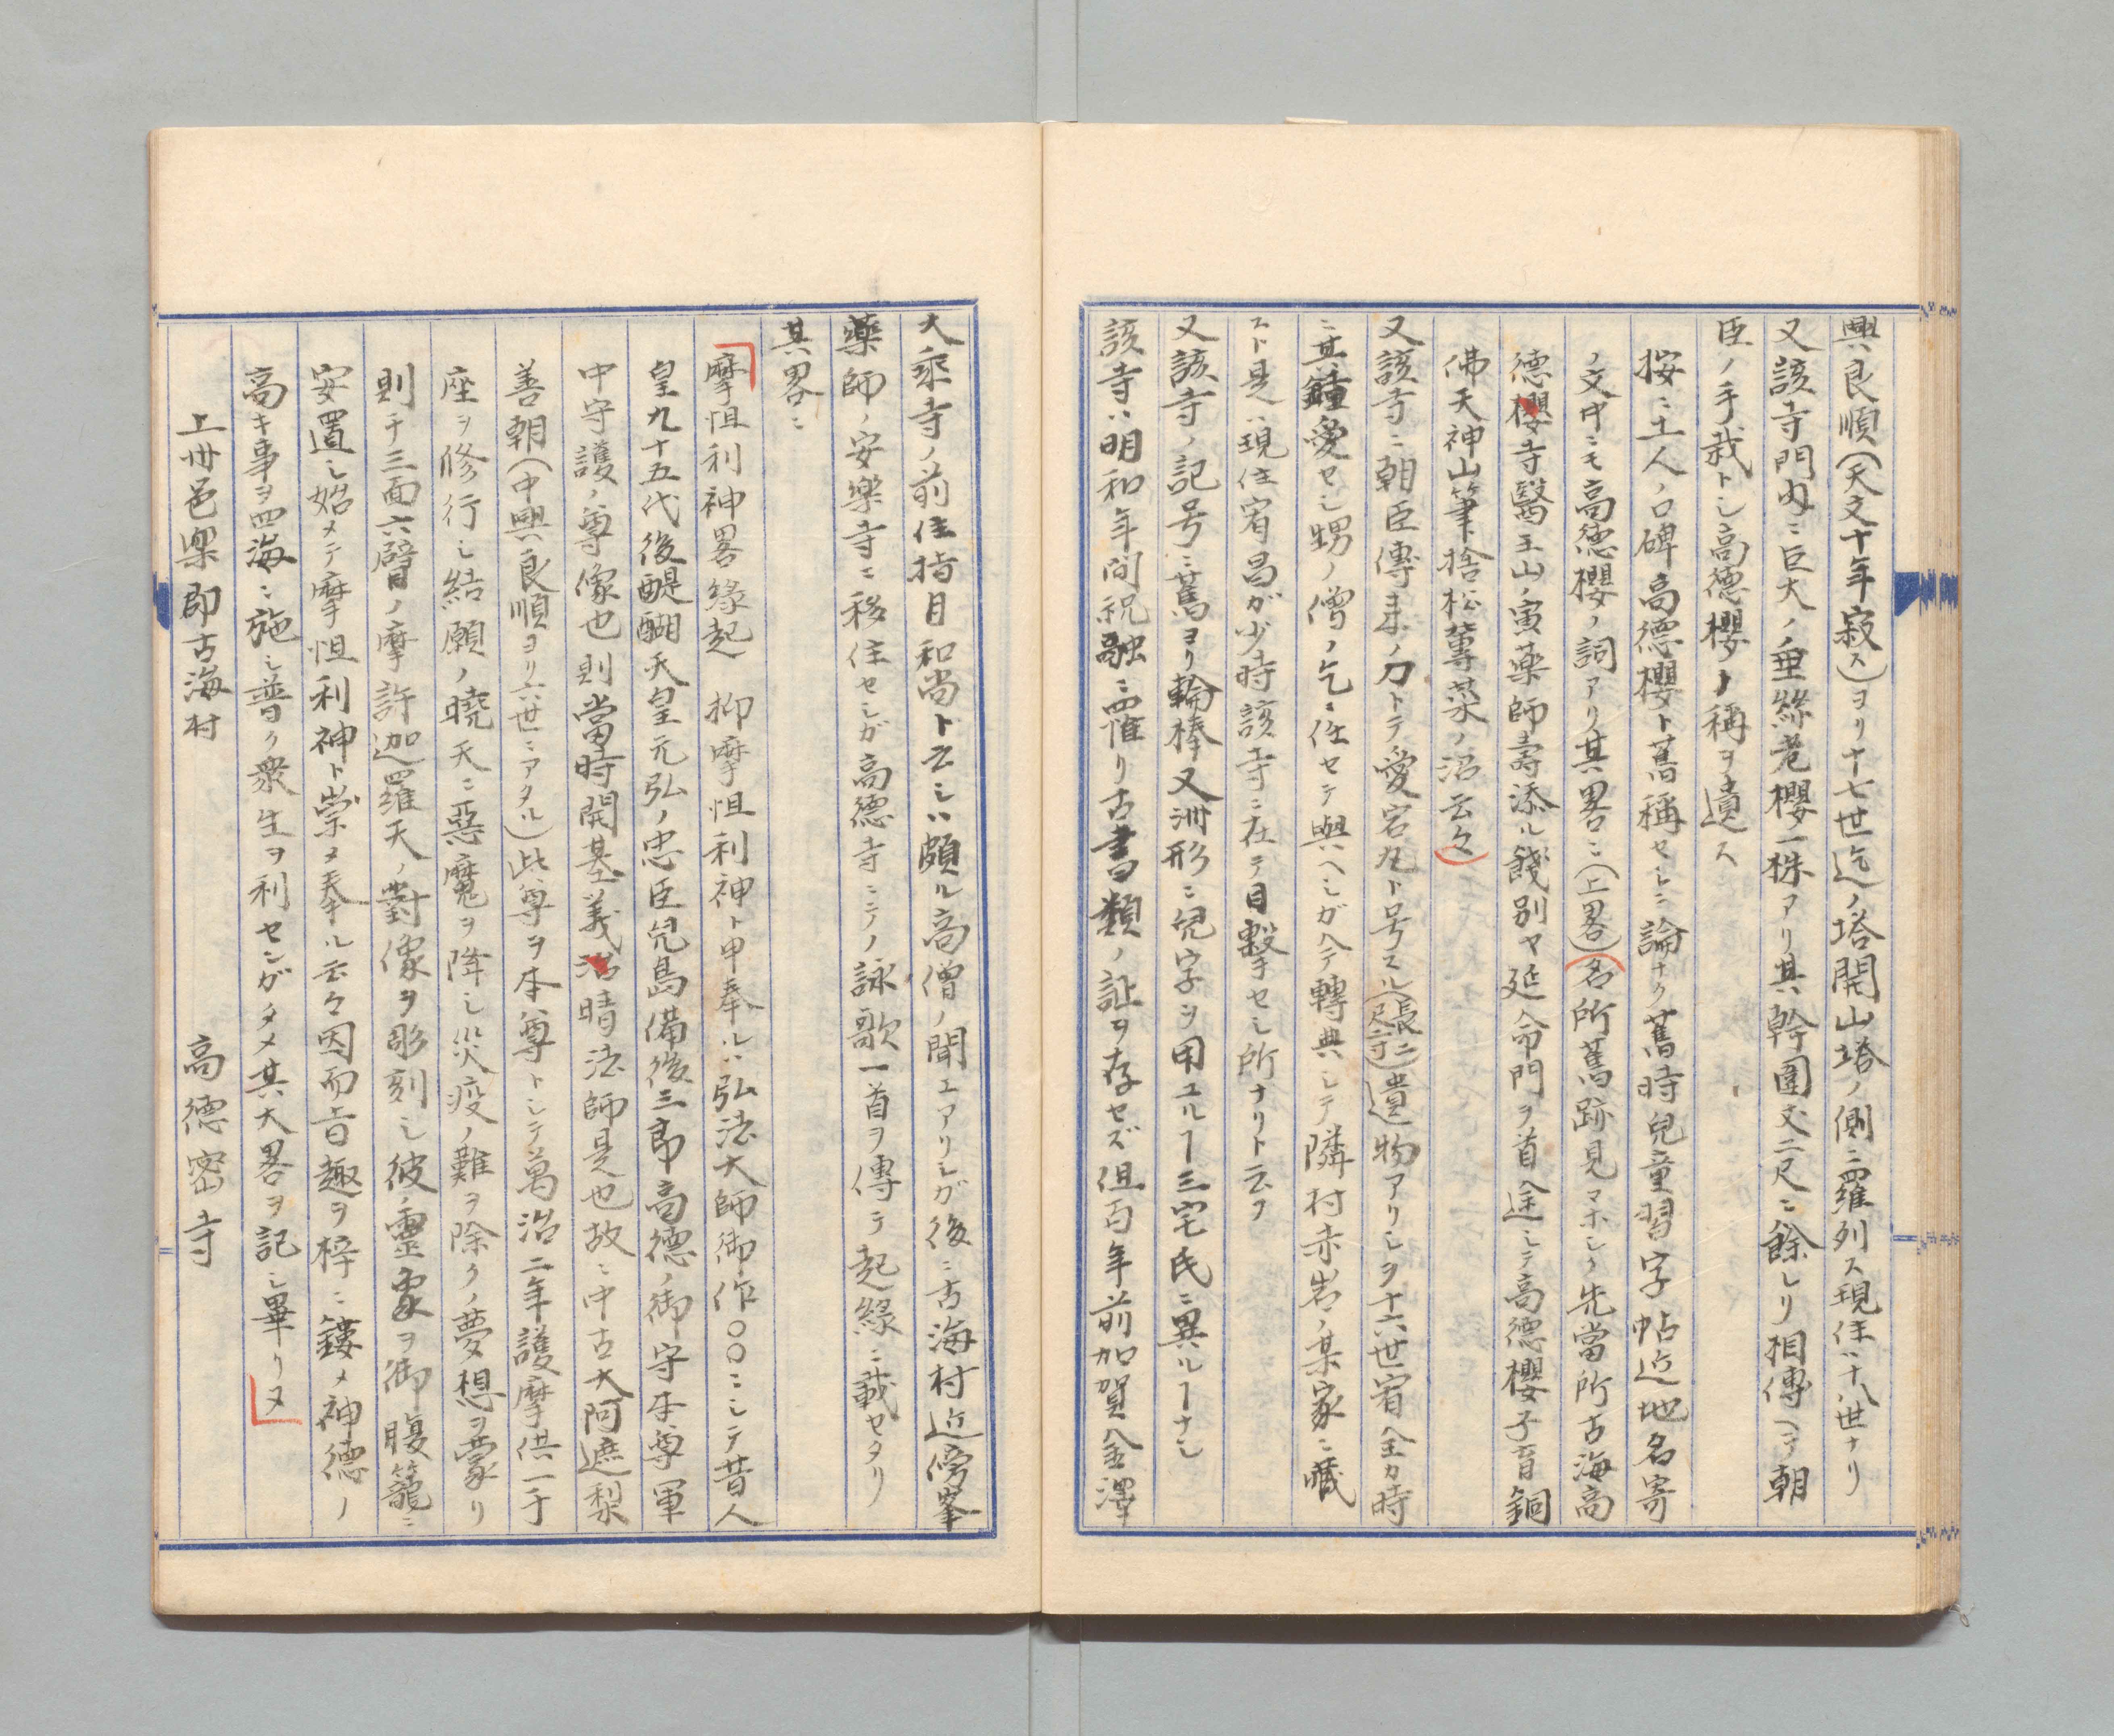 興良順(天文十年寂ス)ヨリ十七世迄ノ塔開山塔ノ側ニ羅列ス現住ハ十八世ナリ
又該寺門内ニ巨大ノ垂絲老櫻一株アリ其幹圍丈二尺ニ餘レリ相傳ヘテ朝
臣ノ手栽トシ高德櫻ノ稱ヲ遺ス
按ニ土人ノ口碑高德櫻ト舊稱セシニ論ナク舊時兒童習字帖近地名寄
ノ文中ニモ高德櫻ノ詞アリ其畧ニ(上畧)名所舊跡見マホシク先當所古海高
德櫻寺醫王山ノ寅薬師壽添ル餞別ヤ延命門ヲ首途シテ高德櫻子育銅
佛天神山筆捨松蓴菜ノ沼云々
又該寺ニ朝臣傳来ノ刀トテ愛宕丸ト号スル(長二尺二寸)遺物アリシヲ十六世宥全カ時
ニ其鐘愛セシ甥ノ僧ノ乞ニ任セテ與ヘシガ今テ轉典シテ隣村赤岩ノ某家ニ藏
スト是ハ現住宥昌ガ少時該寺ニ在テ目擊セシ所ナリト云フ
又該寺ノ記号ニ舊ヨリ輪棒又洲形ニ児字ヲ用ユルヿ三宅氏ニ異ルヿナシ
該寺ハ明和年間祝融ニ罹リ古書類ノ証ヲ存セズ但百年前加賀金澤
大乘寺ノ前住指月和尚ト云シハ頗ル高僧ノ聞エアリシガ後ニ古海村近傍峯
藥師ノ安樂寺ニ移住セシガ高德寺ニテノ詠歌一首ヲ傳テ起緣ニ載セタリ
其畧ニ
摩怛利神畧緣起 抑摩怛利神ト申奉ルハ弘法大師御作〇〇ニシテ昔人
皇九十五代後醍醐天皇元弘ノ忠臣兒島備後三郎高德ノ御守本尊軍
中守護ノ尊像也則當時開基義治晴法師是也故ニ中古大阿遮梨
善朝(中興良順ヨリ六世ニアタル)此尊ヲ本尊トシテ萬治二年護摩供一千
座ヲ修行シ結願ノ曉天ニ惡魔ヲ降シ災疫ノ難ヲ除クノ夢想ヲ蒙リ
則チ三面六臂ノ摩訶迦羅天ノ對像ヲ彫刻シ彼ノ靈象ヲ御腹籠ニ
安置シ始メテ摩怛利神ト崇メ奉ル云々因而旨趣ヲ梓ニ鏤メ神德ノ
高キ事ヲ四海ニ施シ普ク衆生ヲ利センガタメ其大畧ヲ記シ畢リヌ
上州邑楽郡古海村 高德密寺